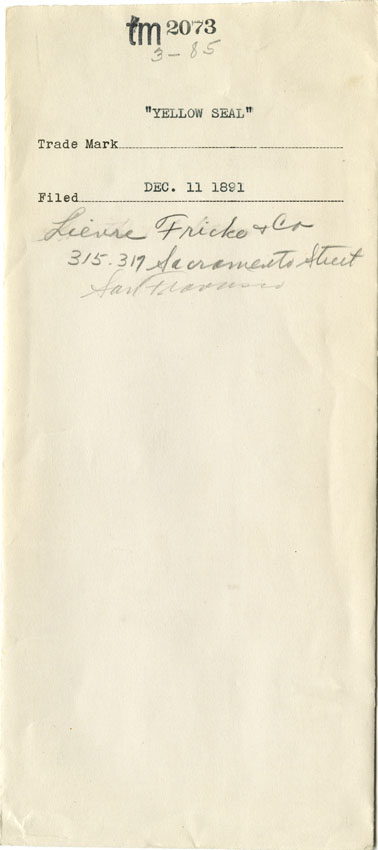 tm 2073
3-85
"YELLOW SEAL"
Trade Mark
DEC. 11 1891
Filed
Lievre Fricke & Co
315.319 Sacramento Street
San Francisco